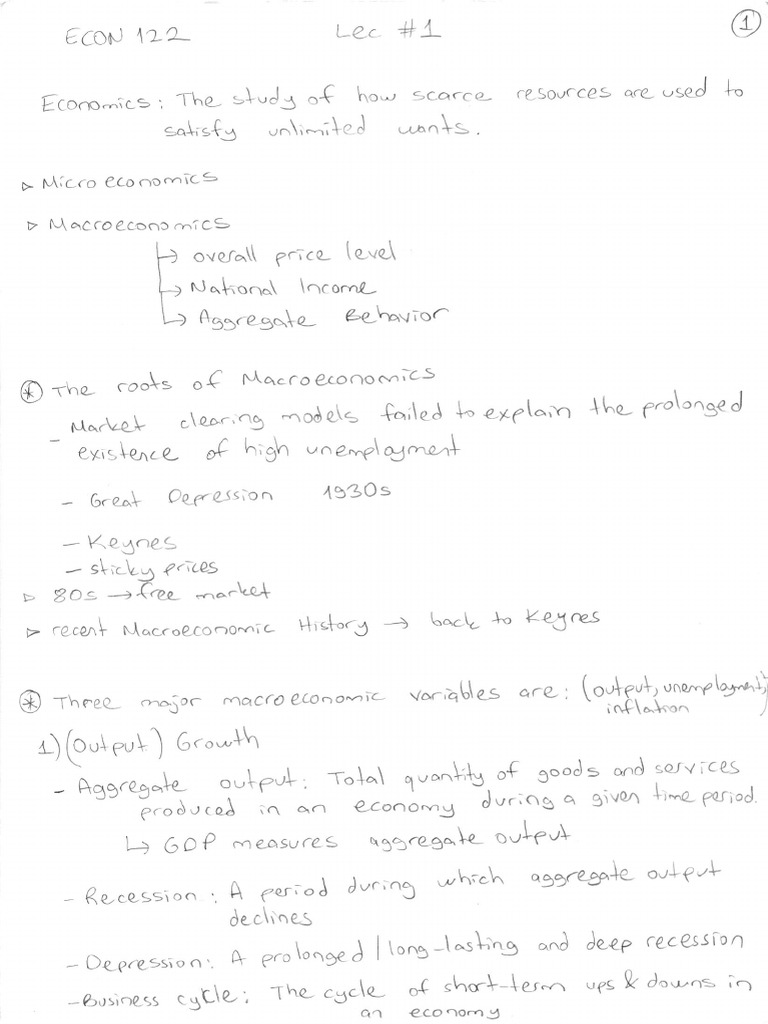 ECON 122 Lec #1 1
Economics: The study of how scarce resources are used to
satisfy unlimited wants.
▷ Microeconomics
▷ Macroeconomics
↳ overall price level
↳ National Income
↳ Aggregate Behavior
⊛ The roots of Macroeconomics
- Market clearing models failed to explain the prolonged
existence of high unemployment
- Great Depression 1930s
- Keynes
- sticky prices
▷ 80s → free market
▷ recent Macroeconomic History → back to Keynes
⊛ Three major macroeconomic variables are: (output, unemployment,
inflation)
1) (Output) Growth
- Aggregate output: Total quantity of goods and services
produced in an economy during a given time period.
↳ GDP measures aggregate output
- Recession: A period during which aggregate output
declines
- Depression: A prolonged/long-lasting and deep recession
- Business cycle: The cycle of short-term ups & downs in
an economy